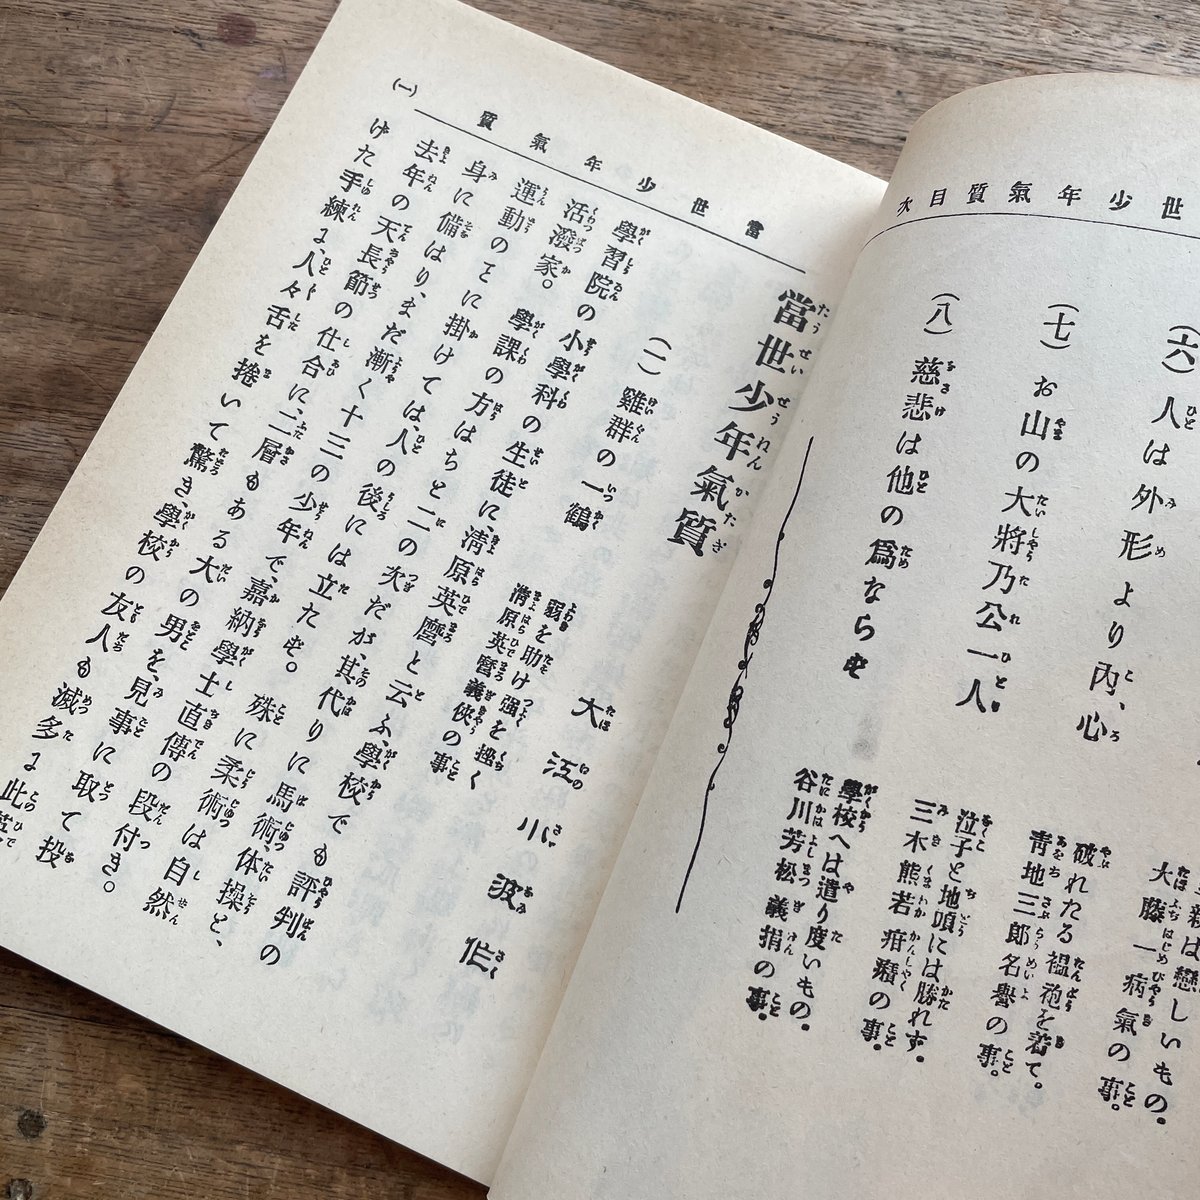 當世少年氣質目次
(六)人は外形より內、心
は戀しいもの。
大藤一病氣の事。
破れたる褞袍を着て。
(七)お山の大將乃公一人
靑地三郞名譽の事。
泣子と地頭には勝れず。
(八)慈悲は他の爲ならず
三木熊若疳癪の事。
學校へは遣り度いもの。
谷川芳松義捐の事。
當世少年氣質
(一)
當世少年氣質
大江小波作
(一)雞群の一鶴
弱を助け强を挫く
淸原英麿義俠の事
學習院の小學科の生徒に、淸原英麿と云ふ、學校でも評判の
活潑家。學課の方はちと二の次だが、其代りに馬術体操と、
運動のことに掛けては、人の後には立たず。殊に柔術は自然
身に備はり、まだ漸く十三の少年で、嘉納學士直傳の段付き。
去年の天長節の仕合に、二層もある大の男を、見事に取て投
げた手練に、人々舌を捲いて驚き、學校の友人も滅多に此英